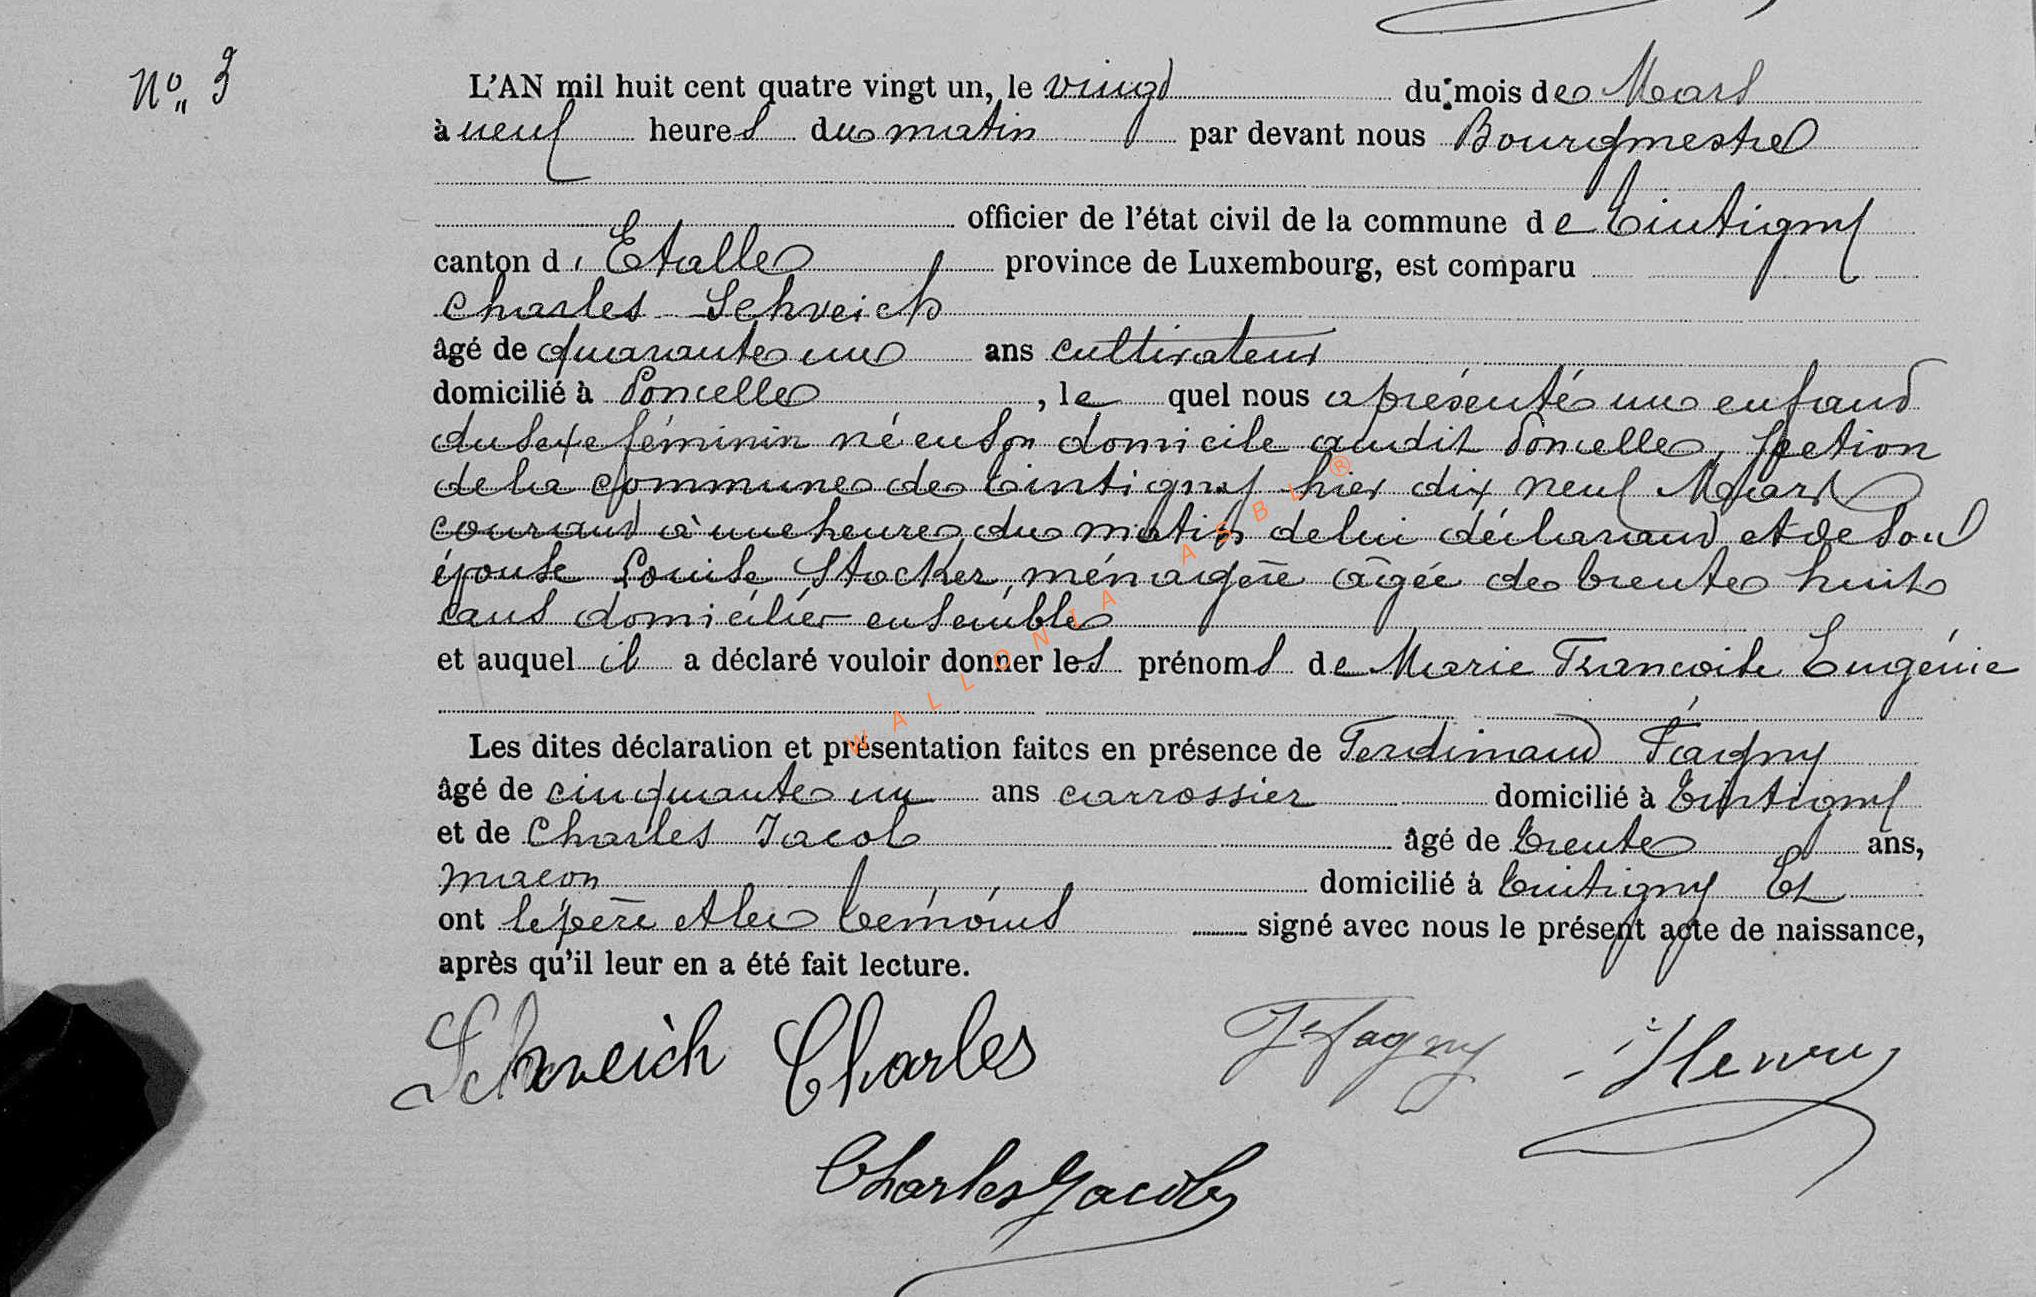 No 3
L'AN mil huit cent quatre vingt un, le vingt du mois de Mars
à neuf heures du matin par devant nous Bourgmestre
officier de l'état civil de la commune de Tintigny
canton d'Etalle province de Luxembourg, est comparu
Charles Schveich
âgé de quarante un ans cultivateur
domicilié à Poncelle, lequel nous a présenté un enfant
du sexe féminin né en son domicile audit Poncelle, section
de la commune de Tintigny hier dix neuf Mars
courant à une heure du matin de lui déclarant et de son
épouse Louise Stocker ménagère âgée de trente huit
ans domiciliés ensemble
et auquel il a déclaré vouloir donner les prénoms de Marie Francoise Eugénie
Les dites déclaration et présentation faites en présence de Ferdinand Fagny
âgé de cinquante un ans carrossier domicilié à Tintigny
et de Charles Jacob âgé de trente ans,
macon domicilié à Tintigny Et
ont le père et les témoins signé avec nous le présent acte de naissance,
après qu'il leur en a été fait lecture.
Schveich Charles Fd Fagny Henry
Charles Jacob
WALLONIA ASBL ®